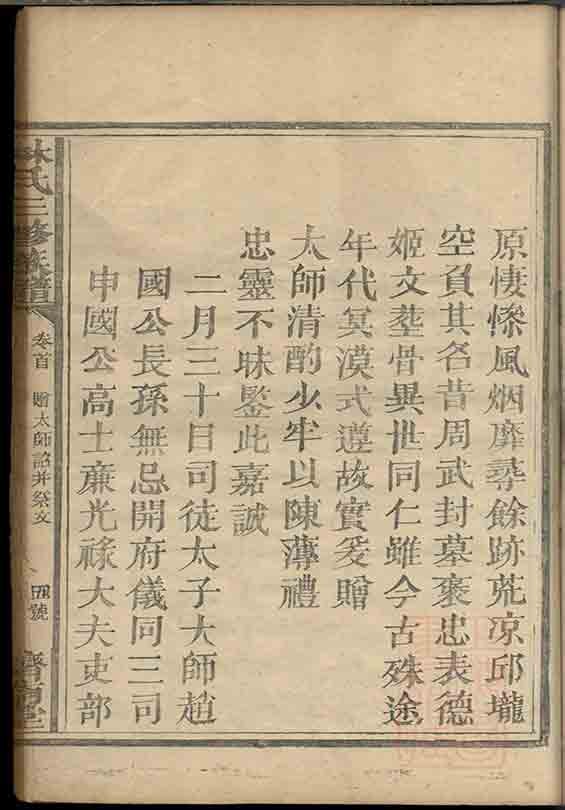 原悽慘風烟靡尋餘跡荒凉邱壠
空負其名昔周武封墓褒忠表德
姬文葬骨異世同仁雖今古殊途
年代冥漠式遵故實爰贈
太師清酌少牢以陳薄禮
忠靈不昧鑒此嘉誠
二月三十日司徒太子大師趙
國公長孫無忌開府儀同三司
申國公高士亷光祿大夫吏部
林氏三修族譜
卷首
贈太師詔并祭文
四號
濟南堂